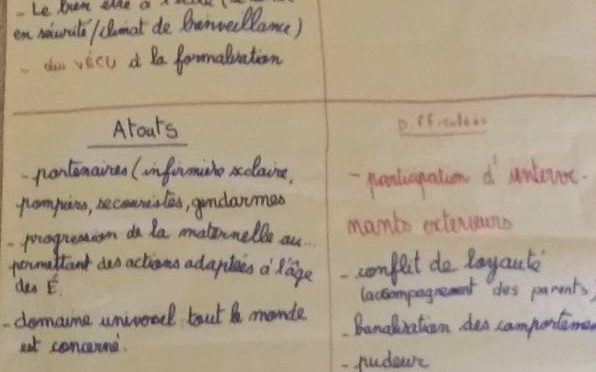 - Le bien être à l'école (
en sécurité/climat de bienveillance)
- du VÉCU à la formalisation
Atouts
- partenaires (infirmière scolaire,
pompiers, secouristes, gendarmes
- progression de la maternelle au...
permettant des actions adaptées à l'âge
des É.
- domaine universel tout le monde
est concerné.
Difficultés
- participation d'interve-
nants exterieurs
- conflit de loyauté
(accompagnement des parents)
- banalisation des comportemen
- pudeur